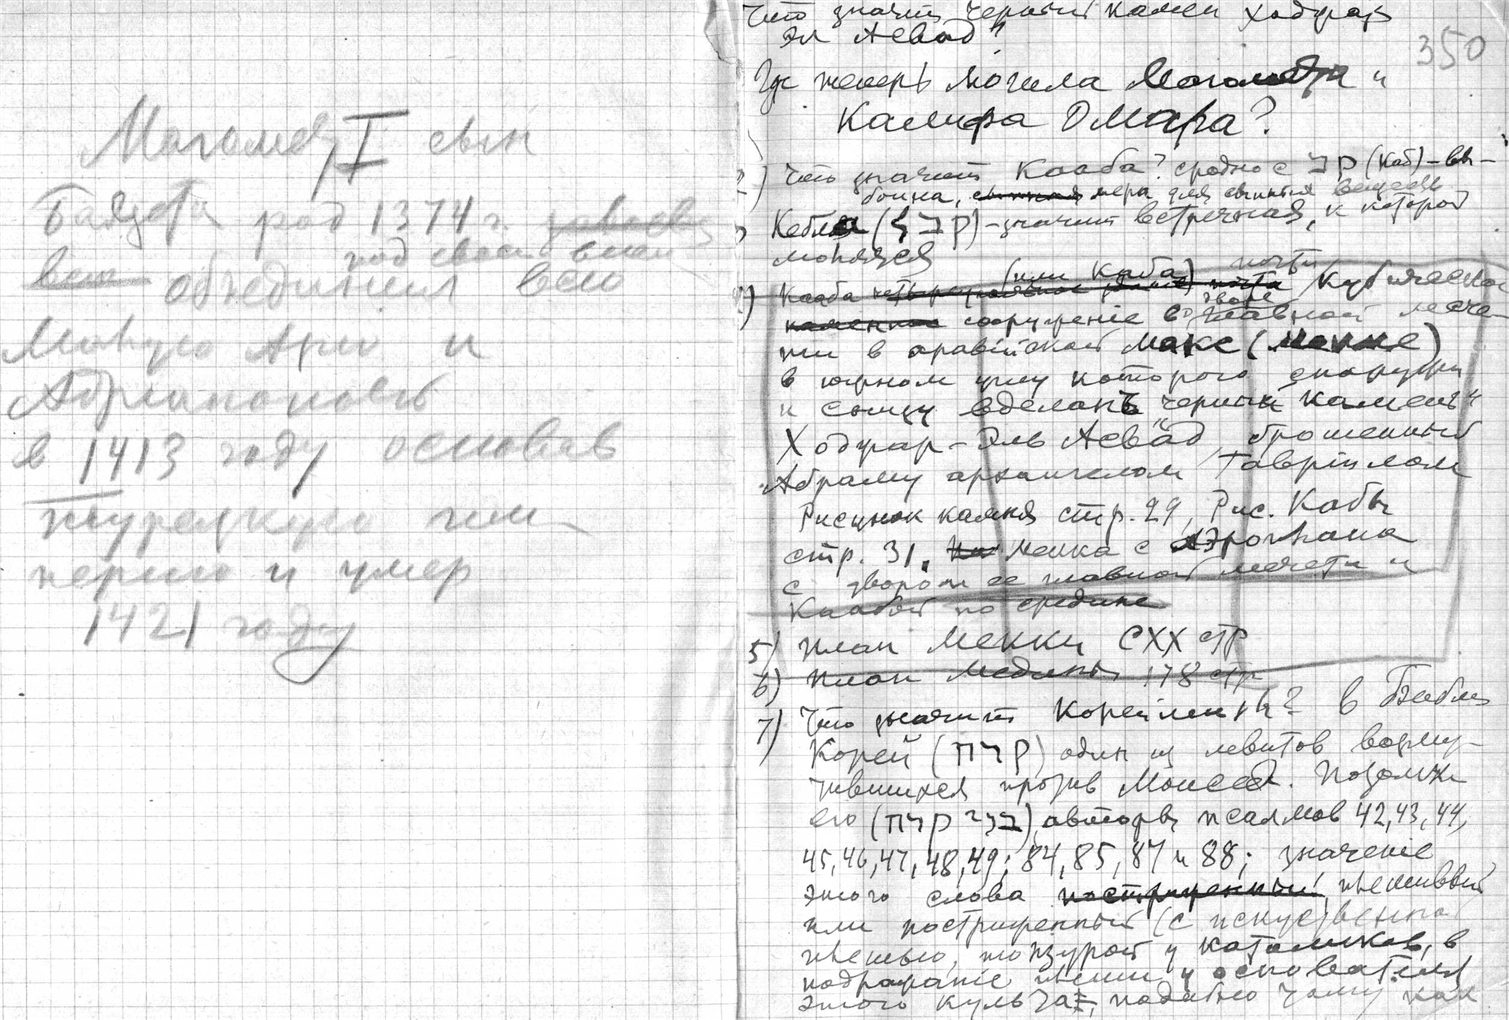 Магомед I сын
Баязета род 1374 г. завоевав
под своей
всю объединил всю
Малую Азию и
Адрианополь
в 1413 году основав
турецкую им-
перию и умер
1421 году
350
Что значит черный камен Ходжар
Эл Асвад?
Где теперь могила Магомета и
Калифа Омара?
2) Что значит Кааба? сродно с קב (Каб) – вы-
боина, мера для сыпных веществ
Кебла (קבל) – значит встречная, к которой
молятся
4) Кааба четыреугольное здание (или Каба) почти кубическое
каменное сооружение во дворе главной мече-
ти в аравийской Макс (Мекке)
в южном углу которого снаружи
к солнцу вделанъ "черный камень"
Ходжар-Эль Асвад, брошенный
Абраму архангелом Гаврiилом
Рисунок камня стр. 29, Рис. Кабы
стр. 31. Мекка с Аэроплана
с двором ее главной мечети и
Каабой по средине
5) план Мекки CXX стр
6) план Медины 178 стр
7) Что значит Корейшиты? в Библiи
Корей (קרח) один из левитов возму-
тившихся против Моисея. Потомки
его (בני קרח), авторы псалмов 42, 43, 44,
45, 46, 47, 48, 49; 84, 85, 87 и 88; значенiе
этого слова постриженный плешивый
или постриженный (с искуственной
плешью, тонзурой у католиков, в
подражанiе плеши у основателя
этого культа, подобно тому как